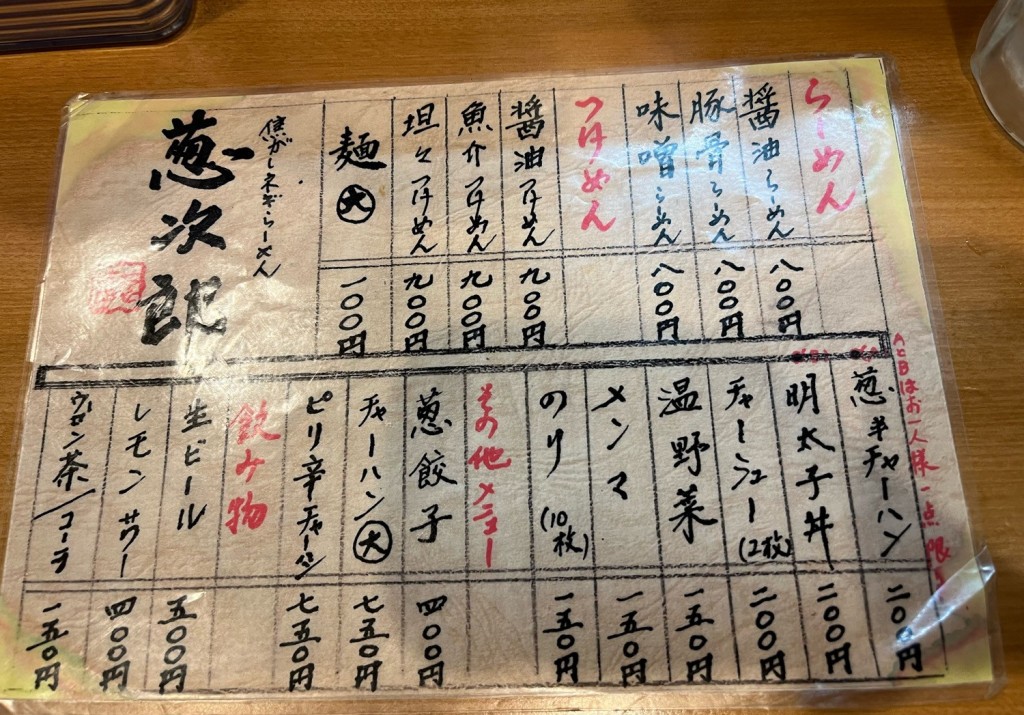 らーめん
醤油らーめん 八〇〇円
豚骨らーめん 八〇〇円
味噌らーめん 八〇〇円
つけめん
醤油つけめん 九〇〇円
魚介つけめん 九〇〇円
坦々つけめん 九〇〇円
麺大 一〇〇円
焦がしネギらーめん
葱次郎
AとBはお一人様一点限り
葱半チャーハン 二〇〇円
明太子丼 二〇〇円
チャーシュー(2枚) 二〇〇円
温野菜 一五〇円
メンマ 一五〇円
のり(10枚) 一五〇円
その他メニュー
葱餃子 四〇〇円
チャーハン大 七五〇円
ピリ辛チャーハン 七五〇円
飲み物
生ビール 五〇〇円
レモンサワー 四〇〇円
ウーロン茶/コーラ 一五〇円